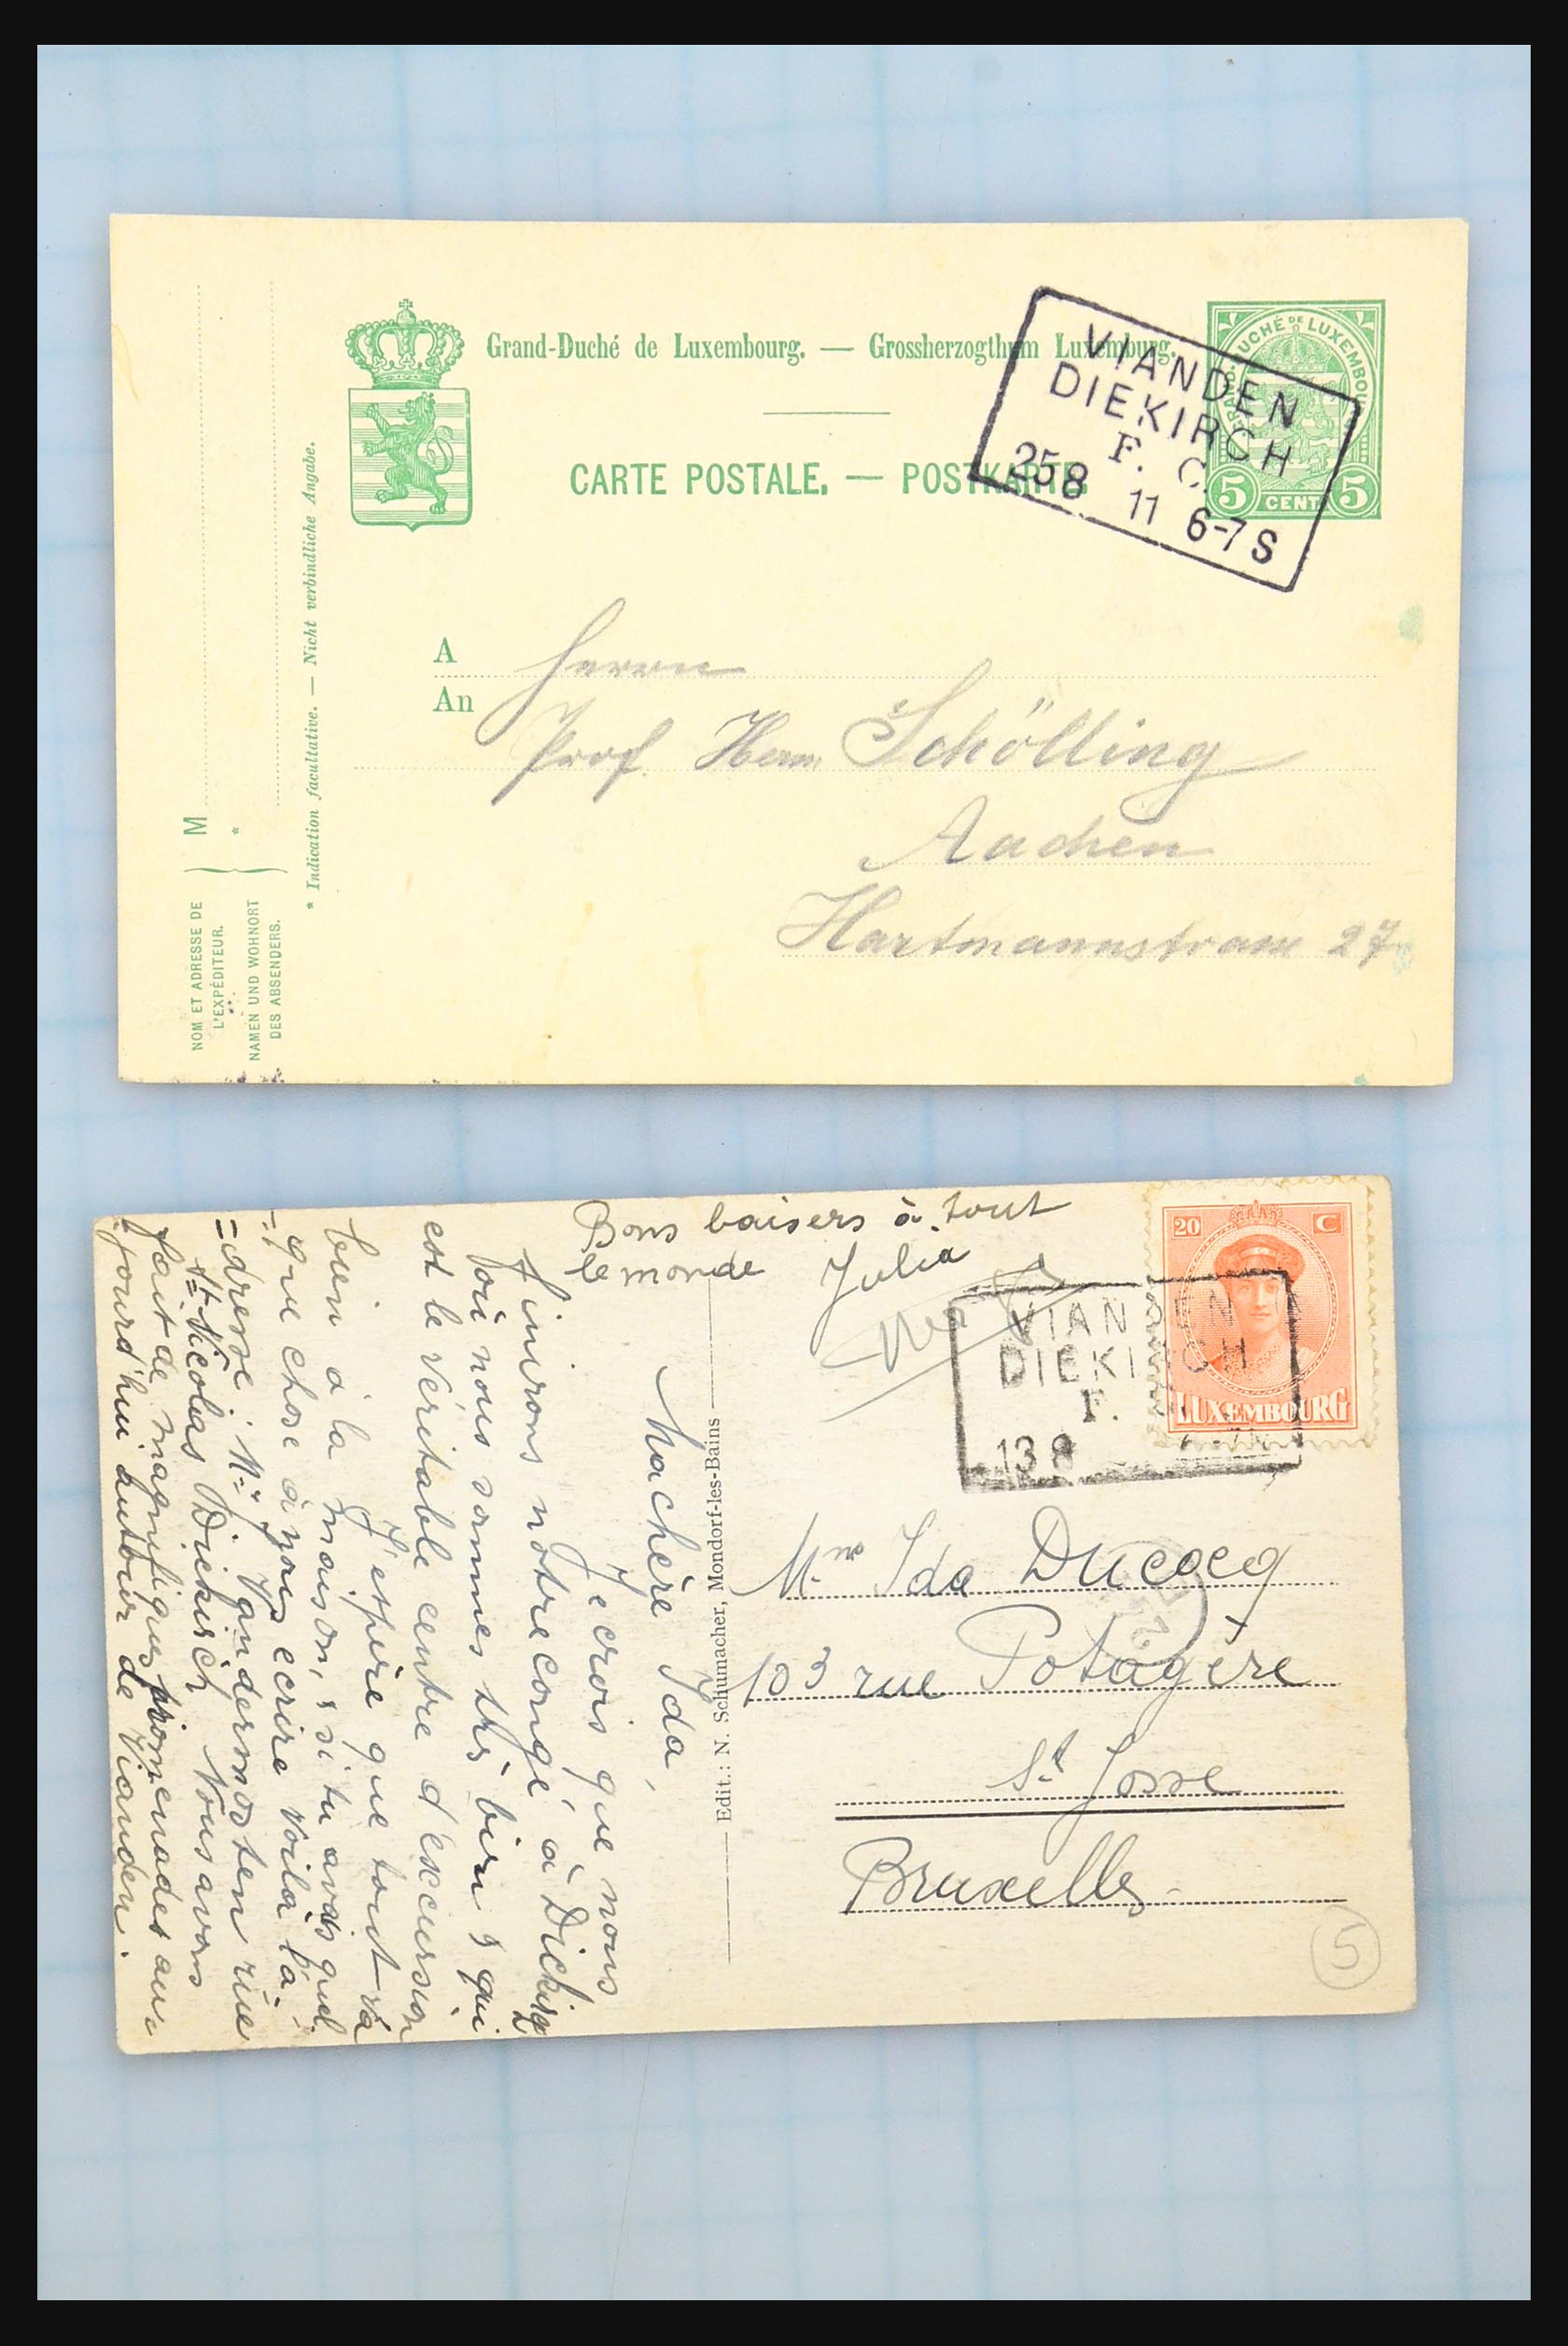 Grand-Duché de Luxembourg. — Grossherzogthum Luxemburg.
CARTE POSTALE. — POSTKARTE.
GRAND-DUCHÉ DE LUXEMBOURG
5 CENT. 5
VIANDEN
DIEKIRCH
F. C.
25 8 11 6-7 S
A
An
Herrn
Prof. Herm. Schölling
Aachen
Hartmannstrasse 27
M
*
NOM ET ADRESSE DE
L'EXPÉDITEUR.
NAMEN UND WOHNORT
DES ABSENDERS.
* Indication facultative. — Nicht verbindliche Angabe.
Bons baisers à tout
le monde Julia
20 C
LUXEMBOURG
VIANDEN
DIEKIRCH
F.
13 8
Ma chère Ida,
Je crois que nous
finirons notre congé à Diekirch
où nous sommes très bien & qui
est le véritable centre d'excursion
J'espère que tout va
bien à la maison, & si tu avais quel
-que chose à nous ecrire voilà l'a-
=dresse: Mr Vandermosten rue
St Nicolas Diekirch Nous avons
fait de magnifiques promenades au=
jourd'hui autour de Vianden.
Edit.: N. Schumacher, Mondorf-les-Bains
Mme Ida Ducocq
103 rue Potagère
St Josse
Bruxelles
5